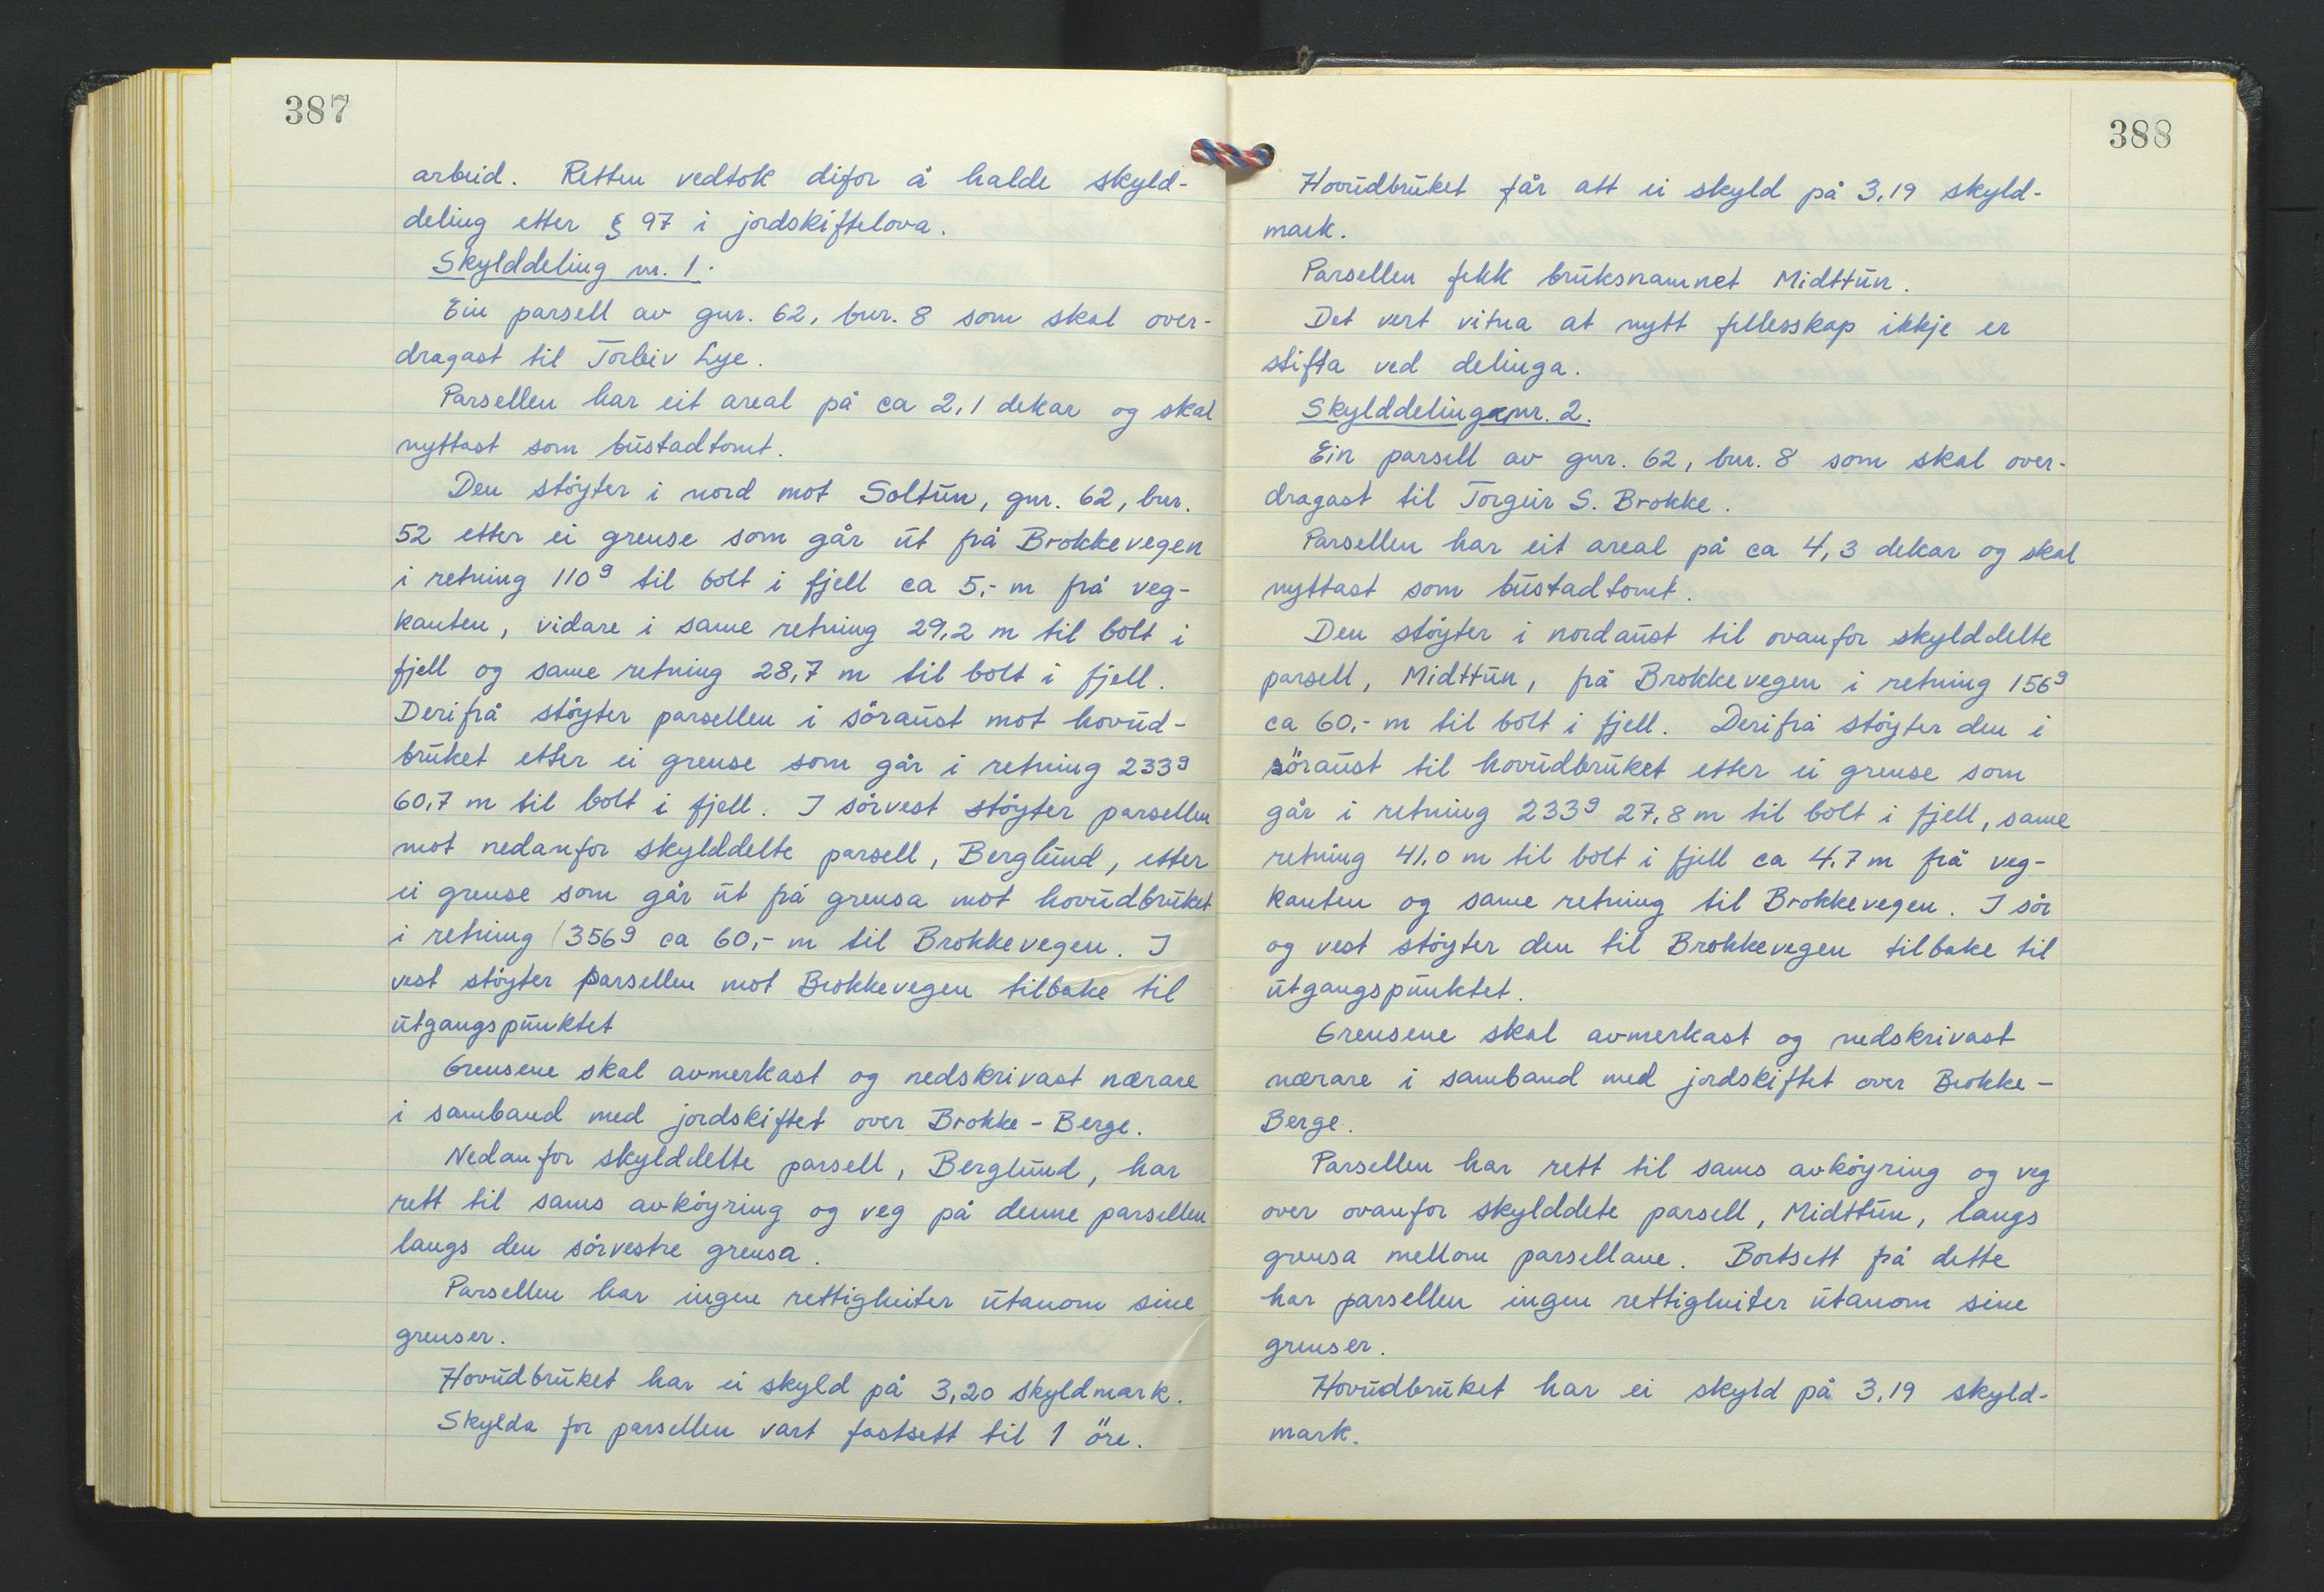 387
arbeid. Retten vedtok difor å halde skyld-
deling etter § 97 i jordskiftelova.
Skylddeling nr. 1.
Ein parsell av gnr. 62, bnr. 8 som skal over-
dragast til Torleiv Lye.
Parsellen har eit areal på ca 2,1 dekar og skal
nyttast som bustadtomt.
Den støyter i nord mot Soltun, gnr. 62, bnr.
52 etter ei grense som går ut frå Brokkevegen
i retning 110g til bolt i fjell ca 5,- m frå veg-
kanten, vidare i same retning 29,2 m til bolt i
fjell og same retning 28,7 m til bolt i fjell.
Derifrå støyter parsellen i søraust mot hovud-
bruket etter ei grense som går i retning 233g
60,7 m til bolt i fjell. I sørvest støyter parsellen
mot nedanfor skylddelte parsell, Berglund, etter
ei grense som går ut frå grensa mot hovudbruket
i retning 356g ca 60,- m til Brokkevegen. I
vest støyter parsellen mot Brokkevegen tilbake til
utgangspunktet
Grensene skal avmerkast og nedskrivast nærare
i samband med jordskiftet over Brokke - Berge.
Nedanfor skylddelte parsell, Berglund, har
rett til sams avkøyring og veg på denne parsellen
langs den sørvestre grensa.
Parsellen har ingen rettigheiter utanom sine
grenser.
Hovudbruket har ei skyld på 3,20 skyldmark.
Skylda for parsellen vart fastsett til 1 öre.
388
Hovudbruket får att ei skyld på 3,19 skyld-
mark.
Parsellen fekk bruksnamnet Midttun.
Det vert vitna at nytt fellesskap ikkje er
stifta ved delinga.
Skylddeling nr. 2.
Ein parsell av gnr. 62, bnr. 8 som skal over-
dragast til Torgeir S. Brokke.
Parsellen har eit areal på ca 4,3 dekar og skal
nyttast som bustadtomt.
Den støyter i nordaust til ovanfor skylddelte
parsell, Midttun, frå Brokkevegen i retning 156g
ca 60,- m til bolt i fjell. Derifrå støyter den i
söraust til hovudbruket etter ei grense som
går i retning 233g 27,8 m til bolt i fjell, same
retning 41,0 m til bolt i fjell ca 4,7 m frå veg-
kanten og same retning til Brokkevegen. I sør
og vest støyter den til Brokkevegen tilbake til
utgangspunktet.
Grensene skal avmerkast og nedskrivast
nærare i samband med jordskiftet over Brokke -
Berge.
Parsellen har rett til sams avkøyring og veg
over ovanfor skylddete parsell, Midttun, langs
grensa mellom parsellane. Bortsett frå dette
har parsellen ingen rettigheiter utanom sine
grenser.
Hovudbruket har ei skyld på 3,19 skyld-
mark.